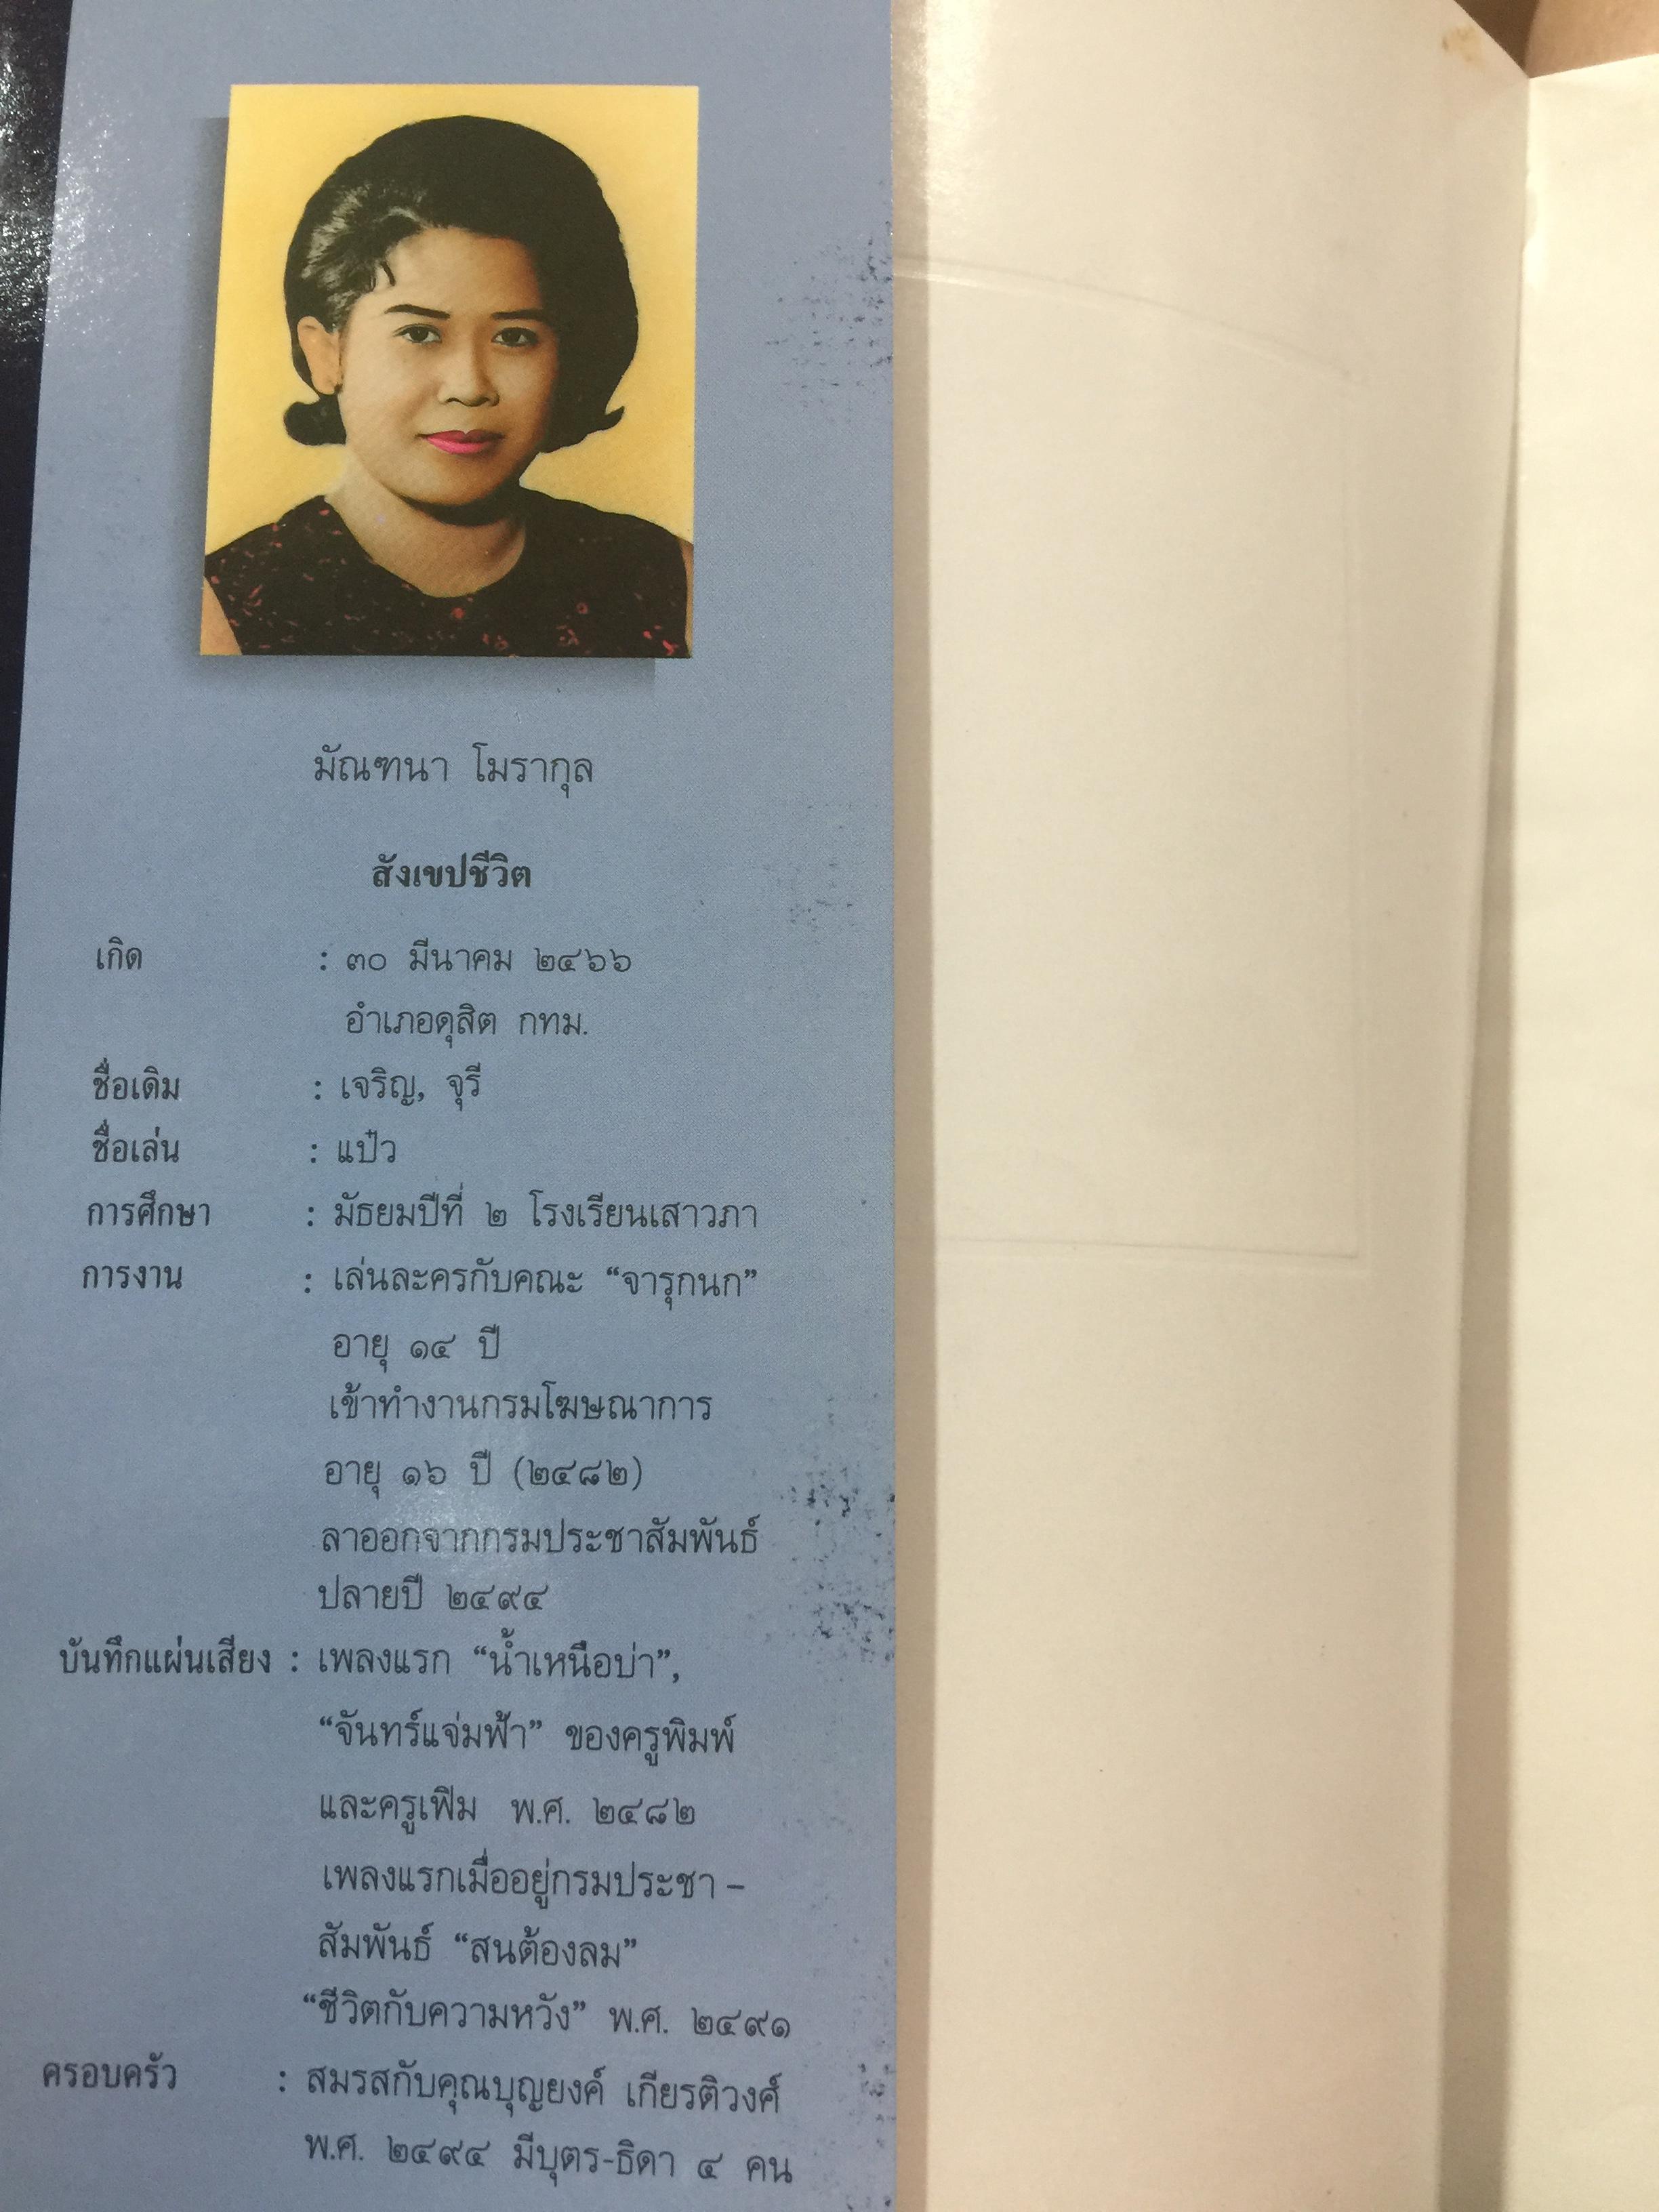 มัณฑนา โมรากุล
สังเขปชีวิต
เกิด : ๓๐ มีนาคม ๒๔๖๖
อำเภอดุสิต กทม.
ชื่อเดิม : เจริญ, จุรี
ชื่อเล่น : แป๋ว
การศึกษา : มัธยมปีที่ ๒ โรงเรียนเสาวภา
การงาน : เล่นละครกับคณะ “จารุกนก”
อายุ ๑๔ ปี
เข้าทำงานกรมโฆษณาการ
อายุ ๑๖ ปี (๒๔๘๒)
ลาออกจากกรมประชาสัมพันธ์
ปลายปี ๒๔๙๔
บันทึกแผ่นเสียง : เพลงแรก “น้ำเหนือบ่า”,
“จันทร์แจ่มฟ้า” ของครูพิมพ์
และครูเฟิม พ.ศ. ๒๔๘๒
เพลงแรกเมื่ออยู่กรมประชา -
สัมพันธ์ “สนต้องลม”
“ชีวิตกับความหวัง” พ.ศ. ๒๔๙๑
ครอบครัว : สมรสกับคุณบุญยงค์ เกียรติวงศ์
พ.ศ. ๒๔๙๔ มีบุตร-ธิดา ๔ คน